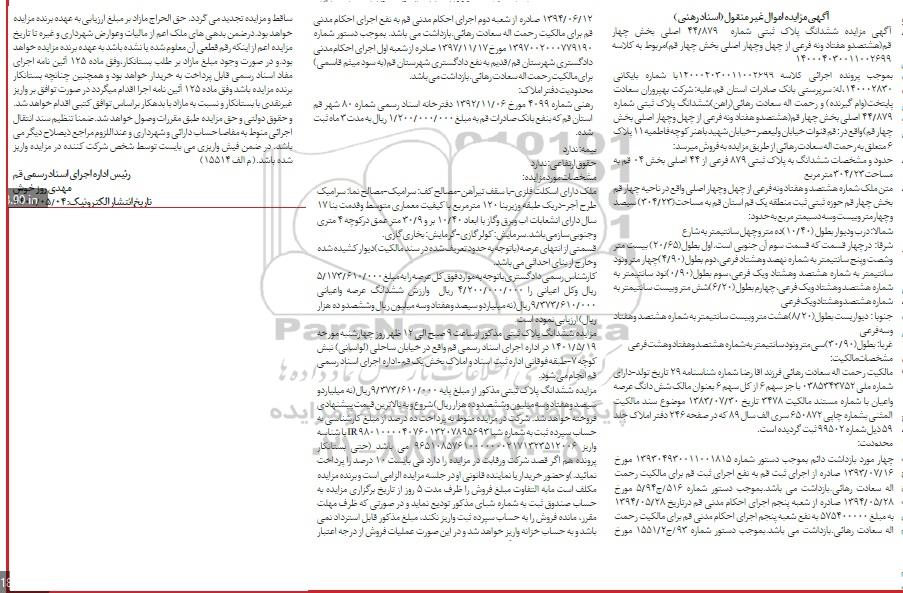 آگهی مزایده اموال غیر منقول (اسناد رهنی)
آگهی مزایده ششدانگ پلاک ثبتی شماره ۴۴/۸۷۹ اصلی بخش چهار
قم(هشتصدو هفتاد ونه فرعی از چهل وچهار اصلی بخش چهار قم)مربوط به کلاسه
۱۴۰۰۰۴۰۳۰۰۱۱۰۰۲۶۹۹
بموجب پرونده اجرائی کلاسه ۱۴۰۰۰۴۰۳۰۰۱۱۰۰۲۶۹۹با شماره بایگانی
۱۴۰۰۰۲۸۳۰،له: سرپرستی بانک صادرات استان قم،علیه: شرکت بهپروران سعادت
پایتخت(وام گیرنده) و رحمت اله سعادت رهائی(راهن)ششدانگ پلاک ثبتی شماره
۴۴/۸۷۹ اصلی بخش چهار قم(هشتصدو هفتاد ونه فرعی از چهل وچهار اصلی بخش
چهار قم)واقع در: قم قنوات خیابان ولیعصر-خیابان شهید باهنر کوچه فاطمیه ۱۱ پلاک
۶ متعلق به رحمت اله سعادت رهائی از طریق مزایده به فروش میرسد:
حدود و مشخصات ششدانگ به پلاک ثبتی ۸۷۹ فرعی از ۴۴ اصلی بخش ۰۴ قم به
مساحت ۳۰۴/۲۳ متر مربع
متن ملک شماره هشتصد و هفتاد ونه فرعی از چهل وچهار اصلی واقع در ناحیه چهار قم
بخش چهار قم حوزه ثبتی ثبت منطقه یک قم استان قم به مساحت (۳۰۴/۲۳) سیصد
وچهار متر وبیست وسه دسیمتر مربع به حدود:
شمالا: درب و دیوار بطول (۱۰/۴۰)ده متر وچهل سانتیمتر به شارع
شرقا: در چهار قسمت که قسمت سوم آن جنوبی است. اول بطول(۲۰/۶۵) بیست متر
وشصت وپنج سانتیمتر به شماره نهصد وهشتاد فرعی،دوم بطول(۴/۹۰)چهار متر ونود
سانتیمتر به شماره هشتصد وهشتاد ویک فرعی،سوم بطول(۰/۹۰)نود سانتیمتر به
شماره هشتصد وهشتاد ویک فرعی،چهارم بطول(۶/۲۰)شش متر وبیست سانتیمتر به
شماره هشتصد وهشتاد ویک فرعی
جنوبا : دیواریست بطول(۸/۲۰)هشت متر وبیست سانتیمتر به شماره هشتصد وهفتاد
وسه فرعی
غربا: بطول(۳۰/۹۰)سی متر ونود سانتیمتر به شماره هشتصد وهفتاد وهشت فرعی
مشخصات مالکیت:
مالکیت رحمت اله سعادت رهائی فرزند اقا رضا شماره شناسنامه ۲۹ تاریخ تولد-دارای
شماره ملی ۰۳۸۵۴۴۳۷۵۲ با جز سهم ۶ از کل سهم ۶ بعنوان مالک شش دانگ عرصه
واعیان با شماره مستند مالکیت ۳۴۷۸ تاریخ ۱۳۸۳/۰۷/۳۰ موضوع سند مالکیت
المثنی بشماره چاپی ۶۵۰۸۷۲ سری الف سال ۸۹ که در صفحه ۲۴۶ دفتر املاک جلد
۵۹ ذیل شماره ۹۹۵۰۲ ثبت گردیده است.
محدودیت:
چهار مورد بازداشت دائم بموجب دستور شماره ۱۳۹۳۰۴۹۳۰۰۱۱۰۰۱۸۱۵ مورخ
۱۳۹۳/۰۷/۱۶ صادره از اجرای ثبت قم به نفع اجرای ثبت قم برای مالکیت رحمت
اله سعادت رهائی،بازداشت می باشد.بموجب دستور شماره ۵۱۶/ج۵/۹۴ مورخ
۱۳۹۴/۰۵/۲۸ صادره از شعبه پنجم اجرای احکام مدنی قم درتاریخ ۱۳۹۴/۰۵/۲۸
به مبلغ ۵۷۵۴۰۰۰۰۰ به نفع شعبه پنجم اجرای احکام مدنی قم برای مالکیت رحمت
اله سعادت رهائی،بازداشت می باشد.بموجب دستور شماره ۹۳/ج۱۵۵۱/۲ مورخ
۱۳۹۴/۰۶/۱۲ صادره از شعبه دوم اجرای احکام مدنی قم به نفع اجرای احکام مدنی
قم برای مالکیت رحمت اله سعادت رهائی،بازداشت می باشد. بموجب دستور شماره
۱۳۹۷۰۰۲۰۰۰۷۷۹۱۹۰ مورخ ۱۳۹۷/۱۱/۱۷ صادره از شعبه اول اجرای احکام مدنی
دادگستری شهرستان قم/قدیم به نفع دادگستری شهرستان قم(به سود میثم قاسمی)
برای مالکیت رحمت اله سعادت رهائی،بازداشت می باشد.
محدودیت دفتر املاک:
رهنی شماره ۴۰۹۹ مورخ ۱۳۹۲/۱۱/۰۶ دفترخانه اسناد رسمی شماره ۸۰ شهر قم
استان قم که بنفع بانک صادرات قم به مبلغ ۱/۲۰۰/۰۰۰/۰۰۰ ریال به مدت ۳ ماه ثبت
شده.
بیمه: ندارد
حقوق ارتفاعی: ندارد
مشخصات مورد مزایده:
ملک دارای اسکلت فلزی-با سقف تیرآهن-مصالح کف: سرامیک-مصالح نما: سرامیک
طرح آجر-در یک طبقه وزیر بنا ۱۲۰ متر مربع با کیفیت معماری متوسط وقدمت بنا ۱۷
سال دارای انشعابات اب وبرق وگاز با ابعاد ۱۰/۴۰ بر و ۳۰/۹ متر عمق در کوچه ۴ متری
وجنوبی ساز می باشد.سرمایش: کولر گازی-گرمایش: بخاری گازی.
قسمتی از انتهای عرصه(باتوجه به حدود تعریف شده در سند مالکیت)دیوار کشیده شده
وخارج از بنای احداثی می باشد.
کارشناس رسمی دادگستری باتوجه به موارد فوق کل عرصه را به مبلغ ۵/۱۷۳/۶۱۰/۰۰۰
ریال وکل اعیانی را ۴/۲۰۰/۰۰۰/۰۰۰ ریال وارزش ششدانگ عرصه واعیانی
۹/۳۷۳/۶۱۰/۰۰۰ریال(نه میلیاردو سیصد وهفتاد وسه میلیون ریال وششصد و ده هزار
ریال)ارزیابی نموده است.
مزایده ششدانگ پلاک ثبتی مذکور از ساعت ۹ صبح الی ۱۲ ظهر روز چهارشنبه مورخه
۱۴۰۱/۵/۱۹ در اداره اجرای اسناد رسمی قم واقع در خیابان ساحلی (لواسانی) نبش
کوچه ۷-طبقه فوقانی اداره ثبت اسناد و املاک بخش یک قم-اداره اجرای اسناد رسمی
قم انجام می شود.
مزایده ششدانگ پلاک ثبتی مذکور از مبلغ پایه ۹/۳۷۳/۶۱۰/۰۰۰ریال(نه میلیاردو
سیصد وهفتاد وسه میلیون وششصد و ده هزار ریال) شروع و به بالاترین قیمت پیشنهادی
فروخته خواهد شد. شرکت در مزایده منوط به پرداخت ده درصد از مبلغ کارشناسی به
حساب سپرده ثبت به شماره شبا IR ۹۸۰۱۰۰۰۰۴۰۷۶۰۱۳۲۰۷۸۹۵۶۹۳ با شناسه
واریز ۹۶۵۱۰۸۵۷۶۱۰۰۰۰۰۰۲۱۷۱۳۲۳۵۱۲۰۰۶ می باشد (حتی بستانکار
پرونده هم اگر قصد شرکت ورقابت در مزایده را دارد می بایست ۱۰ درصد را پرداخت
نماید). او حضور خریدار یا نماینده قانونی او در جلسه مزایده الزامی است و برنده مزایده
مکلف است مابه التفاوت مبلغ فروش را ظرف مدت ۵ روز از تاریخ برگزاری مزایده به
حساب صندوق ثبت به شماره شبای مذکور تودیع نماید و در صورتی که ظرف مهلت
مقرر، مانده فروش را به حساب سپرده ثبت واریز نکند، مبلغ مذکور قابل استرداد نمی
باشد و به حساب خزانه واریز خواهد شد و در این صورت عملیات فروش از درجه اعتبار
ساقط و مزایده تجدید می گردد. حق الحراج مازاد بر مبلغ ارزیابی به عهده برنده مزایده
خواهد بود.در ضمن بدهی های ملک اعم از مالیات وعوارض شهرداری و غیره تا تاریخ
مزایده اعم از اینکه رقم قطعی آن معلوم شده یا نشده باشد به عهده برنده مزایده خواهد
بود.و در صورت وجود مبلغ مازاد بر طلب بستانکار،وفق ماده ۱۲۵ آئین نامه اجرای
مفاد اسناد رسمی قابل پرداخت به خریدار خواهد بود و همچنین چنانچه بستانکار
برنده مزایده باشد وفق ماده ۱۲۵ آئین نامه اجرا اقدام میگردد در صورت توافق بر واریز
غیرنقدی با بستانکار و نسبت به مازاد با بدهکار براساس توافق کتبی اقدام خواهد شد.
و حقوق دولتی و حق مزایده طبق مقررات وصول خواهد شد.ضمنا تنظیم سند انتقال
اجرائی منوط به مفاصا حساب دارائی وشهرداری و عنداللزوم مراجع ذیصلاح دیگر می
باشد. در ضمن فیش واریزی می بایست توسط شخص شرکت کننده در مزایده واریز
شده باشد. (م الف ۱۵۵۱۴)
رئیس اداره اجرای اسناد رسمی قم
مهدی روز خوش
تاریخ انتشار الکترونیک: ۰۵/۰۴